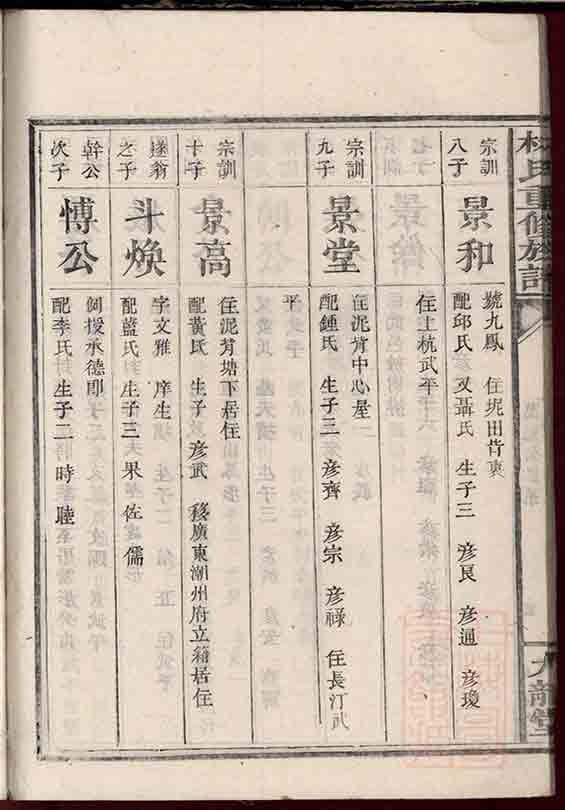 宗訓
八子
景和
號九鳳 住坭田背寮
配邱氏 又聶氏 生子三 彦艮 彦通 彦瓊
住上杭武平
宗訓
九子
景堂
住泥背中心屋
配鍾氏 生子三 彦齊 彦宗 彦祿 住長汀武
平
宗訓
十子
景高
住泥背塘下居住
配黃氏 生子 彦武 移廣東潮州府立籍居住
遂翁
之子
斗煥
字文雅 庠生
配藍氏 生子三 果 佐 儒
幹公
次子
愽公
例授承德郎
配李氏 生子二 時 睦
重修族譜
九龍堂